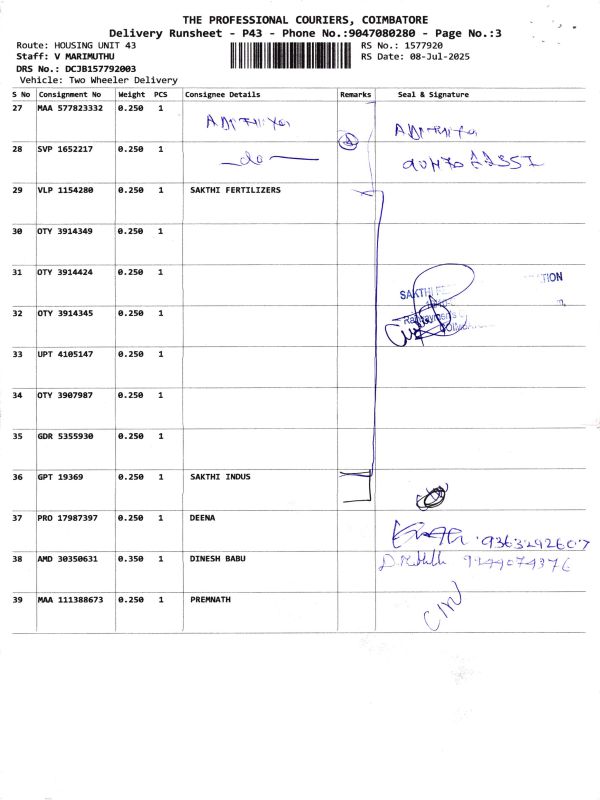 THE PROFESSIONAL COURIERS, COIMBATORE
Delivery Runsheet - P43 - Phone No.:9047080280 - Page No.:3
Route: HOUSING UNIT 43 RS No.: 1577920
Staff: V MARIMUTHU RS Date: 08-Jul-2025
DRS No.: DCJB157792003
Vehicle: Two Wheeler Delivery
S No Consignment No Weight PCS Consignee Details Remarks Seal & Signature
27 MAA 577823332 0.250 1
28 SVP 1652217 0.250 1 do
29 VLP 1154280 0.250 1 SAKTHI FERTILIZERS
30 OTY 3914349 0.250 1
31 OTY 3914424 0.250 1
SAKTHI
32 OTY 3914345 0.250 1
33 UPT 4105147 0.250 1
34 OTY 3907987 0.250 1
35 GDR 5355930 0.250 1
36 GPT 19369 0.250 1 SAKTHI INDUS
37 PRO 17987397 0.250 1 DEENA 9363292607
38 AMD 30350631 0.350 1 DINESH BABU
39 MAA 111388673 0.250 1 PREMNATH